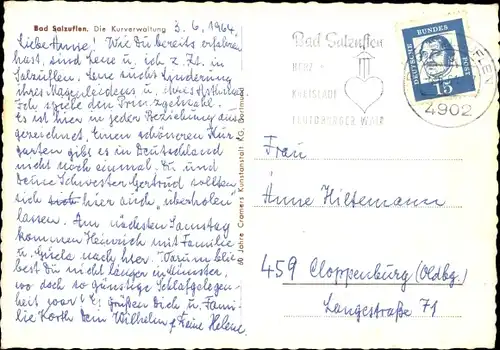 Bad Salzuflen. Die Kurverwaltung
3.6.1964
Liebe Änne! Wie Du bereits erfahren
hast, sind Lene u. ich z. Zt. in
Salzuflen. Lene sucht Linderung
ihres Magenleidens u. ihres Asthmas.
Ich spiele den Prinzgemahl.
Es ist hier in jeder Beziehung aus-
gezeichnet. Einen schöneren Kur-
garten gibt es in Deutschland
nicht noch einmal. Du und
Deine Schwester Gertrud sollten
sich hier auch "überholen"
lassen. Am nächsten Samstag
kommen Heinrich mit Familie
u. Gisela nach hier. Warum blie-
best Du nicht länger in Münster,
wo doch so günstige Schlafgelegen-
heit war? Es grüßen Dich u. Fami-
lie Korth Dein Wilhelm u. Deine Helene.
60 Jahre Cramers Kunstanstalt KG, Dortmund
Bad Salzuflen
HERZ-
KURSTADT
TEUTOBURGER WALD
DEUTSCHE BUNDESPOST
15
4902
Frau
Änne Hiltemann
459 Cloppenburg (Oldbg.)
Langestraße 71